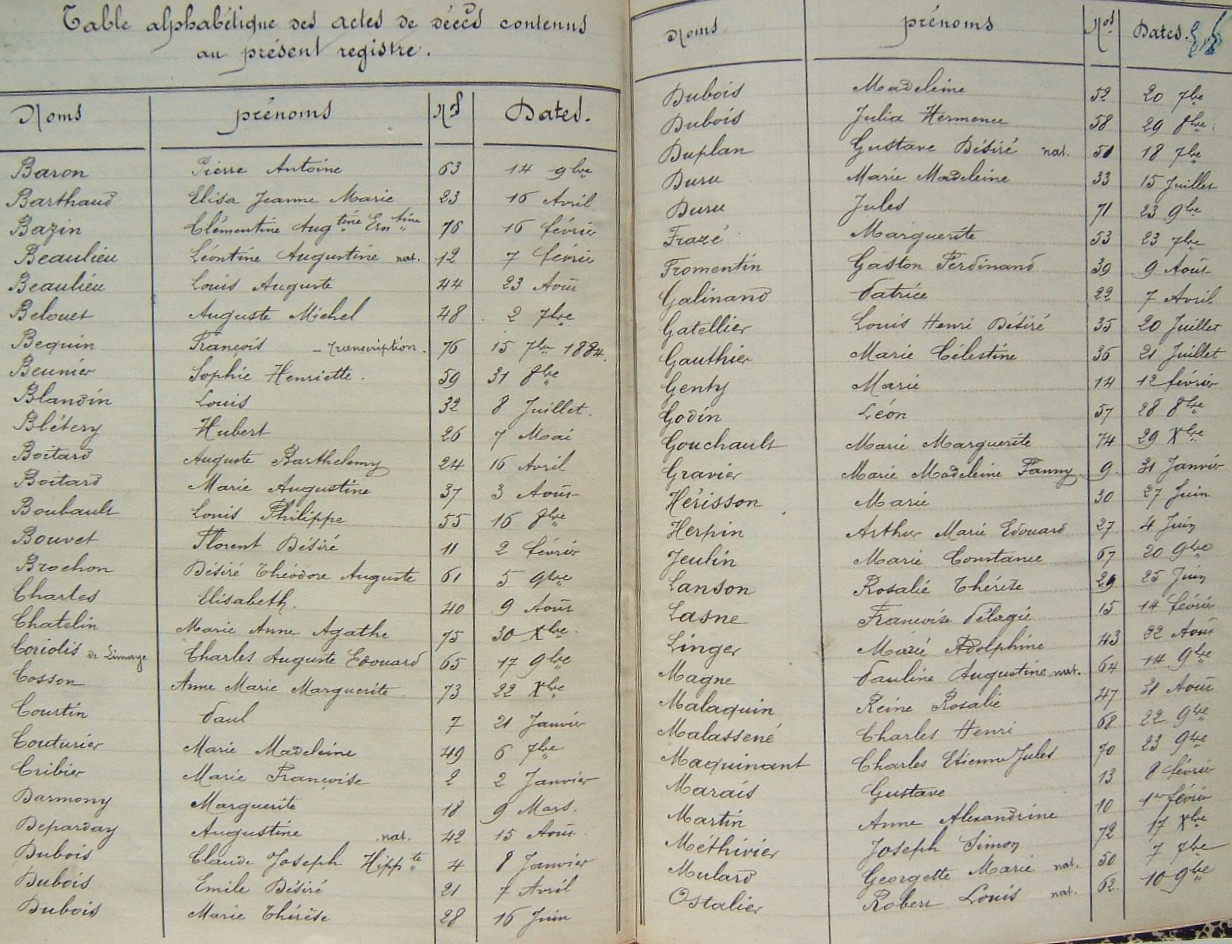 Table alphabétique des actes de décès contenus
au présent registre.
Noms prénoms Nos Dates.
Baron Pierre Antoine 63 14 9bre
Barthaud Elisa Jeanne Marie 23 16 Avril
Bazin Clémentine Augtine Erntine 16 février
Beaulieu Léontine Augustine nat. 12 7 février
Beaulieu Louis Auguste 44 23 Août
Belouet Auguste Michel 48 2 7bre
Bequin François - transcription. 76 15 7bre 1884.
Beunier Sophie Henriette. 59 31 8bre
Blandin Louis 32 8 Juillet.
Blétery Hubert 26 7 Mai
Boitard Auguste Barthelemy 24 16 Avril
Boitard Marie Augustine 37 3 Août
Boubault Louis Philippe 55 16 8bre
Bouvet Florent Désiré 11 2 février
Brochon Désiré Théodore Auguste 61 5 9bre
Charles Elisabeth. 40 9 Août
Chatelin Marie Anne Agathe 75 30 Xbre
Coriolis de Limaye Charles Auguste Edouard 65 17 9bre
Cosson Anne Marie Marguerite 73 22 Xbre
Courtin Paul 7 21 Janvier
Couturier Marie Madeleine 49 6 7bre
Cribier Marie Françoise 2 2 Janvier
Darmony Marguerite 18 9 Mars.
Deparday Augustine nat. 42 15 Août
Dubois Claude Joseph Hippte 4 8 Janvier
Dubois Emile Désiré 21 7 Avril
Dubois Marie Thérèse 28 16 Juin
Noms prénoms Nos Dates.
Dubois Madeleine 52 20 7bre
Dubois Julia Hermence 58 29 8bre
Duplan Gustave Désiré nat. 51 18 7bre
Duru Marie Madeleine 33 15 Juillet
Duru Jules 71 23 9bre
Frazé Marguerite 53 23 7bre
Fromentin Gaston Ferdinand 39 9 Août
Galinand Patrice 22 7 Avril
Gatellier Louis Henri Désiré 35 20 Juillet
Gauthier Marie Célestine 36 21 Juillet
Genty Marie 14 12 février
Godin Léon 57 28 8bre
Gouchault Marie Marguerite 74 29 Xbre
Gravier Marie Madeleine Fanny 9 31 Janvier
Hérisson Marie 30 27 Juin
Herpin Arthur Marie Edouard 27 4 Juin
Jeulin Marie Constance 67 20 9bre
Lanson Rosalie Thérèse 29 25 Juin
Lasne Françoise Pélagie 15 14 février
Linger Marie Adolphine 43 22 Août
Magne Pauline Augustine nat. 64 14 9bre
Malaquin Reine Rosalie 47 31 Août
Malassené Charles Henri 68 22 9bre
Maquinant Charles Etienne Jules 70 23 9bre
Marais Gustave 13 8 février
Martin Anne Alexandrine 10 1er février
Méthivier Joseph Simon 72 17 Xbre
Mulard Georgette Marie nat. 50 7 7bre
Ostalier Robert Louis nat. 62 10 9bre